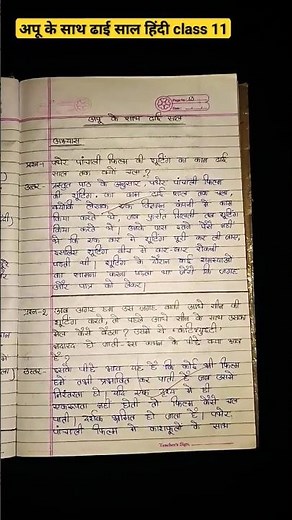 अपू के साथ ढाई साल हिंदी class 11
अपू के साथ ढाई साल
अभ्यास
प्रश्न-1 पथेर पांचाली फिल्म की शूटिंग का काम ढाई
साल तक क्यों चला?
उत्तर- प्रस्तुत पाठ के अनुसार पथेर पांचाली फिल्म
की शूटिंग का काम ढाई साल तक चला,
क्योंकि लेखक एक विज्ञापन कंपनी में काम
किया करते थे, जब फुर्सत मिलती तब शूटिंग
किया करते थे। उनके पास इतने पैसे नहीं
थे कि एक बार में शूटिंग पूरी कर ली जाए,
इसलिए शूटिंग बीच में बार-बार रोकनी
पड़ती थी। शूटिंग के दौरान कई समस्याओं
का सामना करना पड़ता था जैसे कि जगह
और पात्र को लेकर।
प्रश्न-2 अब अगर हम उस जगह बाकी आधे सीन की
शूटिंग करते, तो पहले आधे सीन के साथ उसका
मेल कैसे बैठता? उसमें से 'कंटिन्युइटी'
नदारद हो जाती- इस कथन के पीछे क्या भाव
है?
उत्तर- इसके पीछे भाव यह है कि कोई भी फिल्म
हमें तभी प्रभावित कर पाती है जब उसमें
निरंतरता हो। यदि एक दृश्य में ही
एकरूपता नहीं होती तो फिल्म कैसे चल
पाती। दर्शक भ्रमित हो जाता है। पथेर
पांचाली फिल्म में काशफूलों के साथ
Teacher's Sign